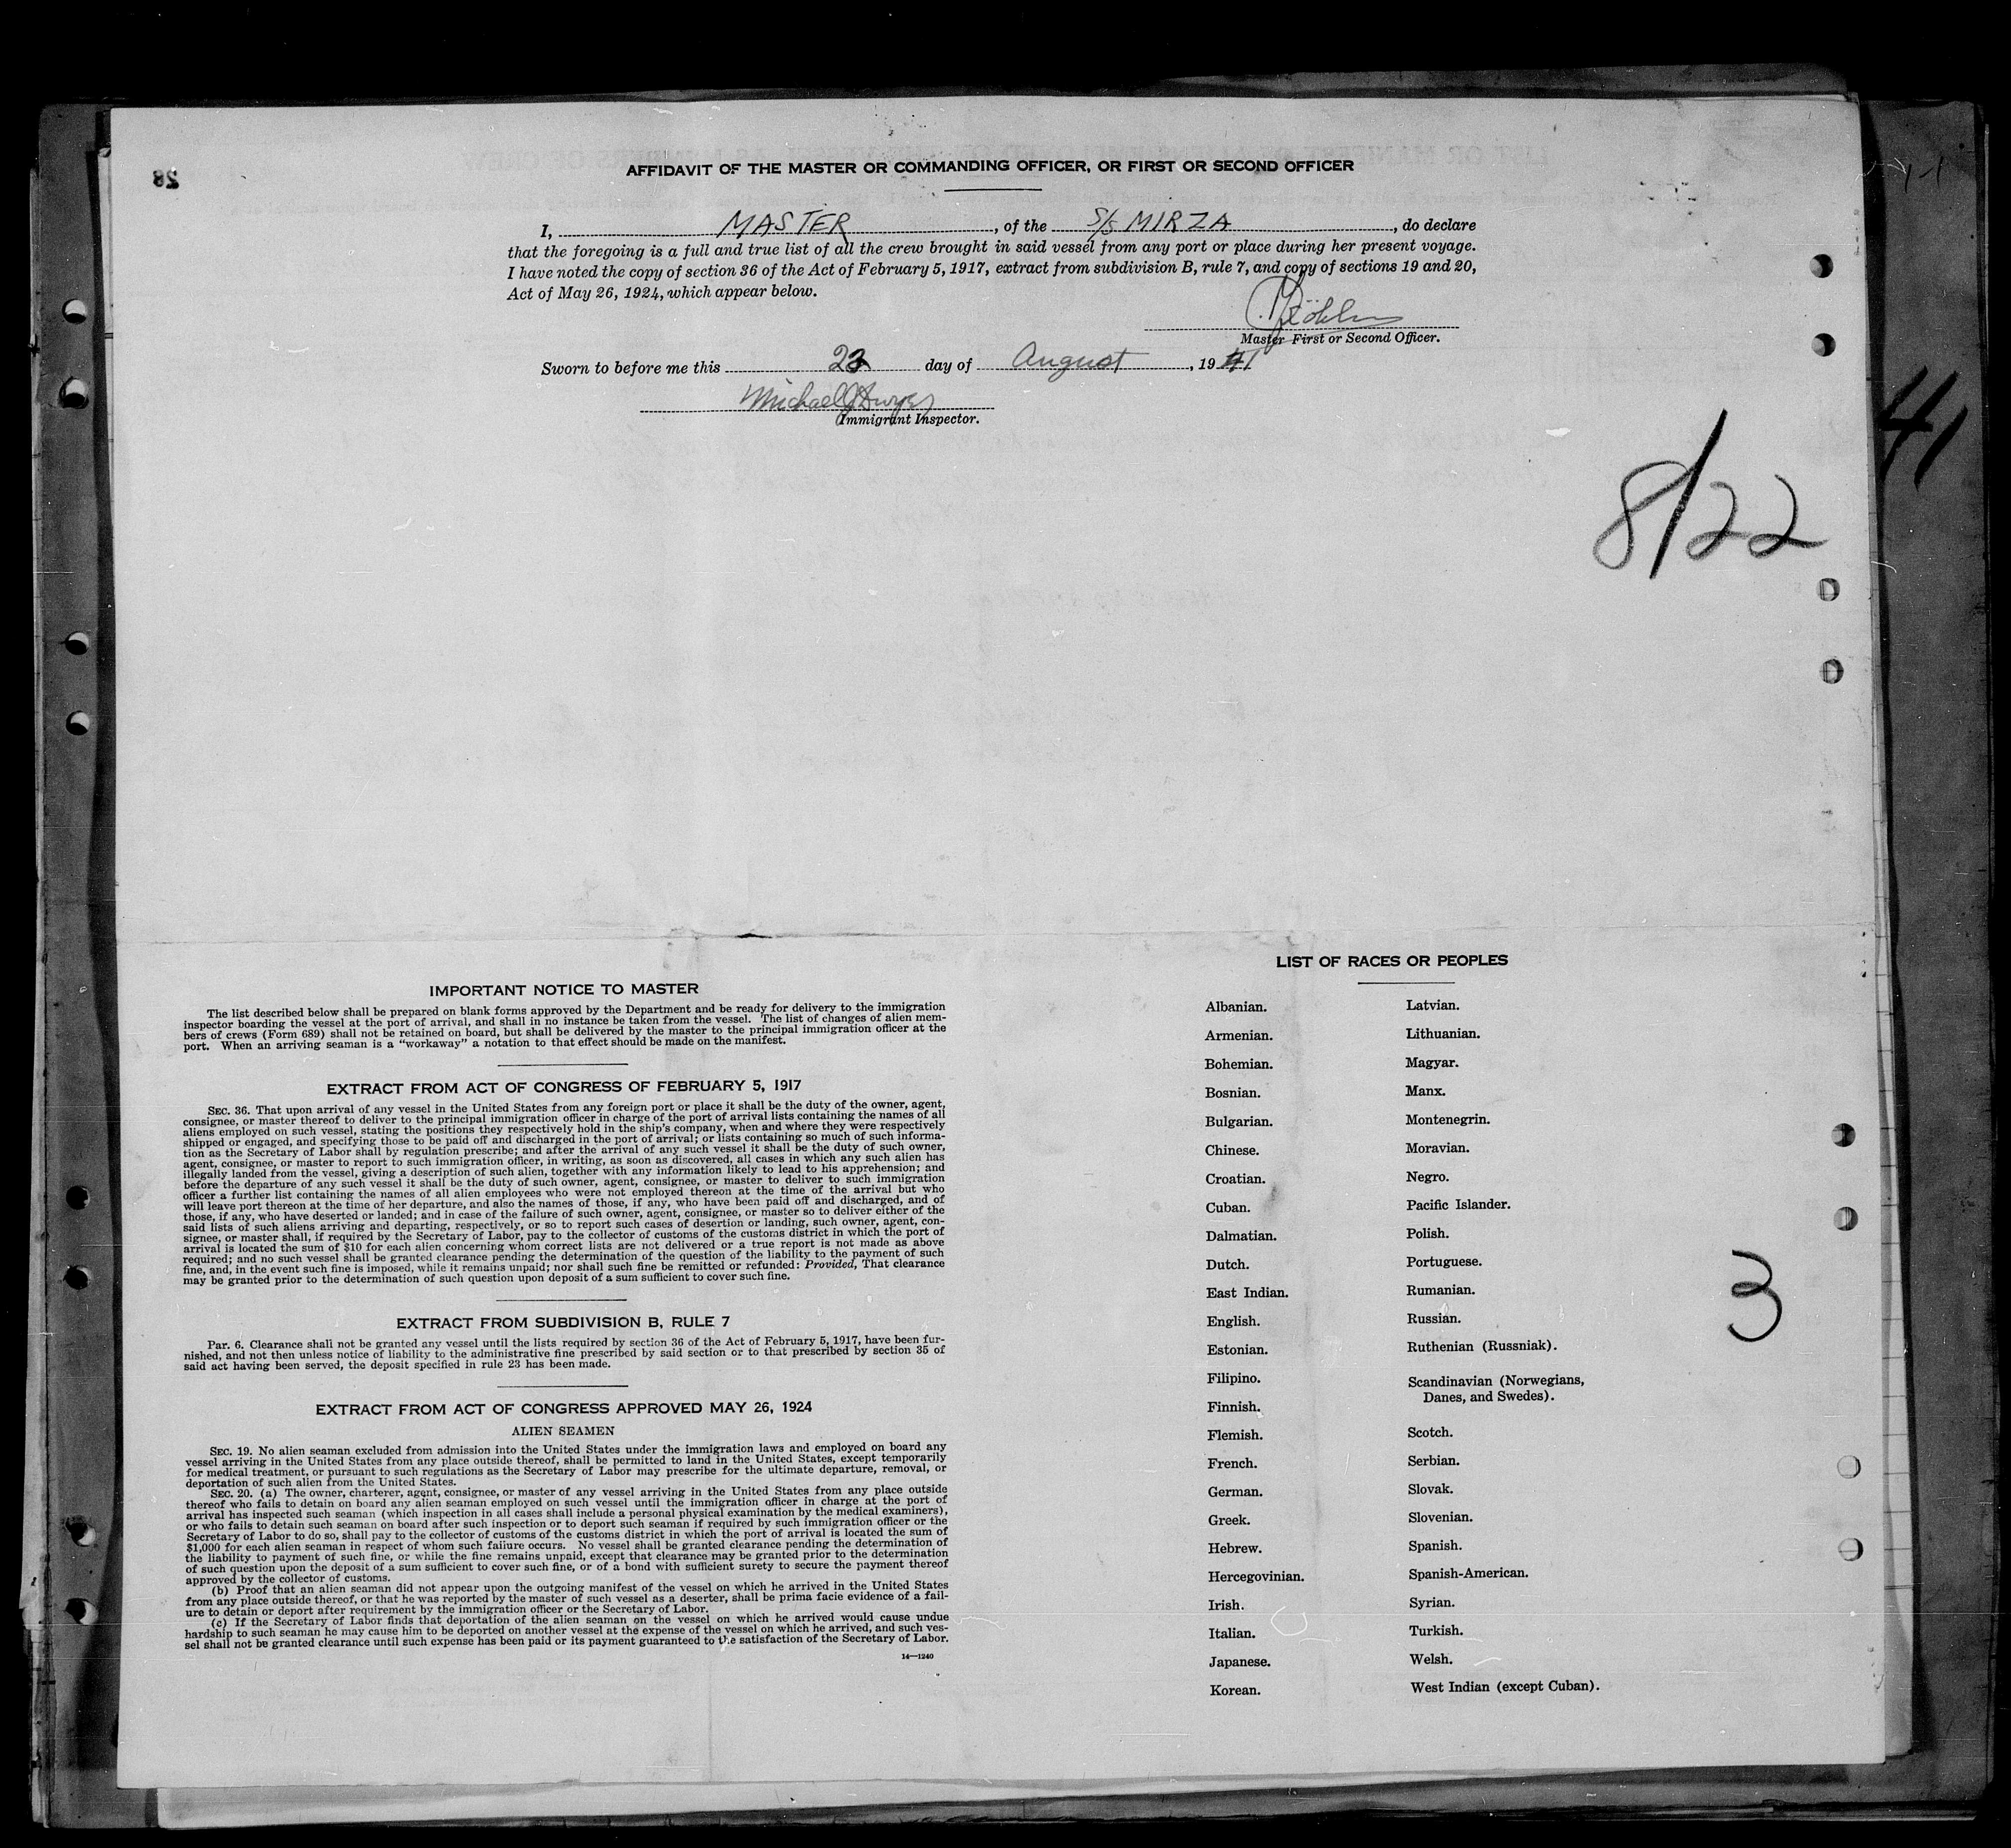 28
AFFIDAVIT OF THE MASTER OR COMMANDING OFFICER, OR FIRST OR SECOND OFFICER
I, MASTER, of the S/S MIRZA, do declare
that the foregoing is a full and true list of all the crew brought in said vessel from any port or place during her present voyage.
I have noted the copy of section 36 of the Act of February 5, 1917, extract from subdivision B, rule 7, and copy of sections 19 and 20,
Act of May 26, 1924, which appear below.
Master First or Second Officer.
Sworn to before me this day of August, 1941
Michael J Dwyer
Immigrant Inspector.
41
8/22
IMPORTANT NOTICE TO MASTER
The list described below shall be prepared on blank forms approved by the Department and be ready for delivery to the immigration
inspector boarding the vessel at the port of arrival, and shall in no instance be taken from the vessel. The list of changes of alien mem-
bers of crews (Form 689) shall not be retained on board, but shall be delivered by the master to the principal immigration officer at the
port. When an arriving seaman is a "workaway" a notation to that effect should be made on the manifest.
EXTRACT FROM ACT OF CONGRESS OF FEBRUARY 5, 1917
SEC. 36. That upon arrival of any vessel in the United States from any foreign port or place it shall be the duty of the owner, agent,
consignee, or master thereof to deliver to the principal immigration officer in charge of the port of arrival lists containing the names of all
aliens employed on such vessel, stating the positions they respectively hold in the ship's company, when and where they were respectively
shipped or engaged, and specifying those to be paid off and discharged in the port of arrival; or lists containing so much of such informa-
tion as the Secretary of Labor shall by regulation prescribe; and after the arrival of any such vessel it shall be the duty of such owner,
agent, consignee, or master to report to such immigration officer, in writing, as soon as discovered, all cases in which any such alien has
illegally landed from the vessel, giving a description of such alien, together with any information likely to lead to his apprehension; and
before the departure of any such vessel it shall be the duty of such owner, agent, consignee, or master to deliver to such immigration
officer a further list containing the names of all alien employees who were not employed thereon at the time of the arrival but who
will leave port thereon at the time of her departure, and also the names of those, if any, who have been paid off and discharged, and of
those, if any, who have deserted or landed; and in case of the failure of such owner, agent, consignee, or master so to deliver either of the
said lists of such aliens arriving and departing, respectively, or so to report such cases of desertion or landing, such owner, agent, con-
signee, or master shall, if required by the Secretary of Labor, pay to the collector of customs of the customs district in which the port of
arrival is located the sum of $10 for each alien concerning whom correct lists are not delivered or a true report is not made as above
required; and no such vessel shall be granted clearance pending the determination of the question of the liability to the payment of such
fine, and, in the event such fine is imposed, while it remains unpaid; nor shall such fine be remitted or refunded: Provided, That clearance
may be granted prior to the determination of such question upon deposit of a sum sufficient to cover such fine.
EXTRACT FROM SUBDIVISION B, RULE 7
Par. 6. Clearance shall not be granted any vessel until the lists required by section 36 of the Act of February 5, 1917, have been fur-
nished, and not then unless notice of liability to the administrative fine prescribed by said section or to that prescribed by section 35 of
said act having been served, the deposit specified in rule 23 has been made.
EXTRACT FROM ACT OF CONGRESS APPROVED MAY 26, 1924
ALIEN SEAMEN
SEC. 19. No alien seaman excluded from admission into the United States under the immigration laws and employed on board any
vessel arriving in the United States from any place outside thereof, shall be permitted to land in the United States, except temporarily
for medical treatment, or pursuant to such regulations as the Secretary of Labor may prescribe for the ultimate departure, removal, or
deportation of such alien from the United States.
SEC. 20. (a) The owner, charterer, agent, consignee, or master of any vessel arriving in the United States from any place outside
thereof who fails to detain on board any alien seaman employed on such vessel until the immigration officer in charge at the port of
arrival has inspected such seaman (which inspection in all cases shall include a personal physical examination by the medical examiners),
or who fails to detain such seaman on board after such inspection or to deport such seaman if required by such immigration officer or the
Secretary of Labor to do so, shall pay to the collector of customs of the customs district in which the port of arrival is located the sum of
$1,000 for each alien seaman in respect of whom such failure occurs. No vessel shall be granted clearance pending the determination of
the liability to payment of such fine, or while the fine remains unpaid, except that clearance may be granted prior to the determination
of such question upon the deposit of a sum sufficient to cover such fine, or of a bond with sufficient surety to secure the payment thereof
approved by the collector of customs.
(b) Proof that an alien seaman did not appear upon the outgoing manifest of the vessel on which he arrived in the United States
from any place outside thereof, or that he was reported by the master of such vessel as a deserter, shall be prima facie evidence of a fail-
ure to detain or deport after requirement by the immigration officer or the Secretary of Labor.
(c) If the Secretary of Labor finds that deportation of the alien seaman on the vessel on which he arrived would cause undue
hardship to such seaman he may cause him to be deported on another vessel at the expense of the vessel on which he arrived, and such ves-
sel shall not be granted clearance until such expense has been paid or its payment guaranteed to the satisfaction of the Secretary of Labor.
14—1240
LIST OF RACES OR PEOPLES
Albanian.
Armenian.
Bohemian.
Bosnian.
Bulgarian.
Chinese.
Croatian.
Cuban.
Dalmatian.
Dutch.
East Indian.
English.
Estonian.
Filipino.
Finnish.
Flemish.
French.
German.
Greek.
Hebrew.
Hercegovinian.
Irish.
Italian.
Japanese.
Korean.
Latvian.
Lithuanian.
Magyar.
Manx.
Montenegrin.
Moravian.
Negro.
Pacific Islander.
Polish.
Portuguese.
Rumanian.
Russian.
Ruthenian (Russniak).
Scandinavian (Norwegians,
Danes, and Swedes).
Scotch.
Serbian.
Slovak.
Slovenian.
Spanish.
Spanish-American.
Syrian.
Turkish.
Welsh.
West Indian (except Cuban).
3